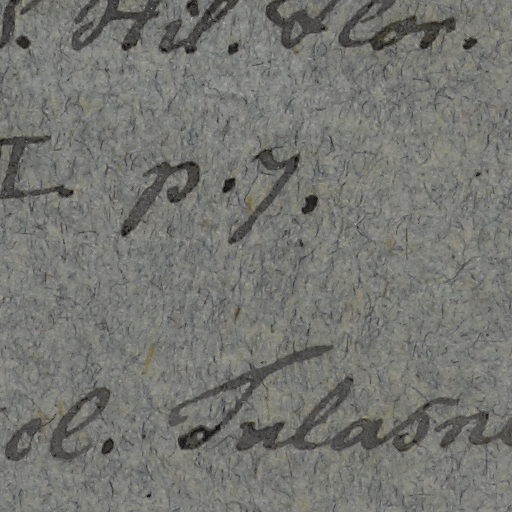 S. Hil. Flor.
I p. 7.
ol. Tulasne